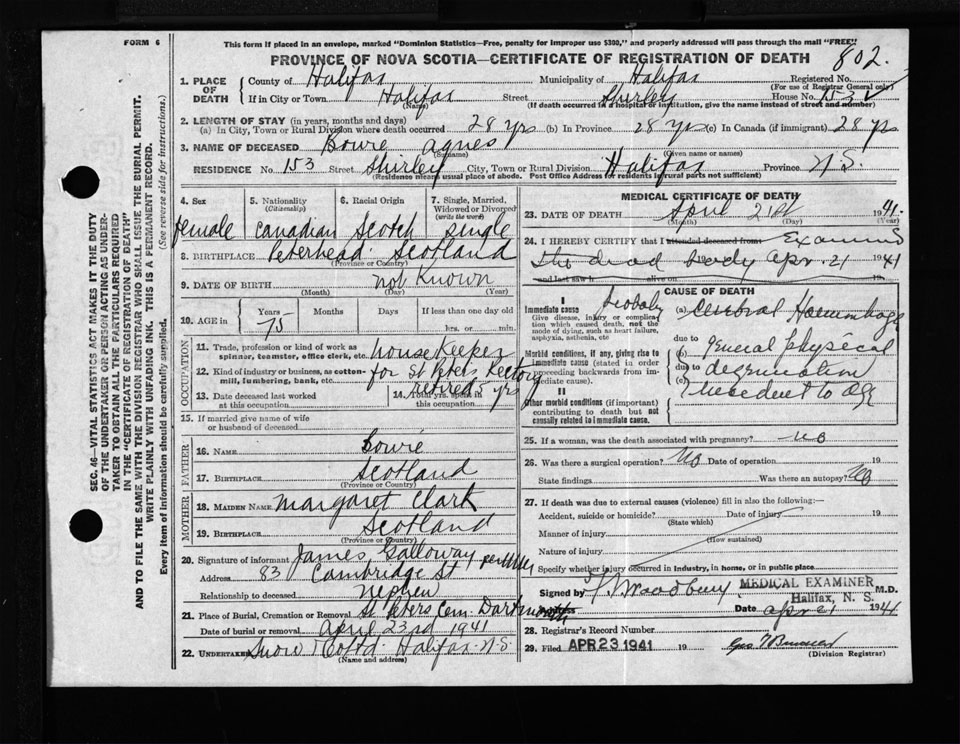 FORM 6
This form if placed in an envelope, marked "Dominion Statistics—Free, penalty for improper use $300," and properly addressed will pass through the mail "FREE"
802.
PROVINCE OF NOVA SCOTIA—CERTIFICATE OF REGISTRATION OF DEATH
1. PLACE OF DEATH County of Halifax Municipality of Halifax Registered No.
(For use of Registrar General only)
If in City or Town Halifax Street Shirley House No. 153
(Name) (If death occurred in a hospital or institution, give the name instead of street and number)
2. LENGTH OF STAY (in years, months and days)
(a) In City, Town or Rural Division where death occurred 28 yrs (b) In Province 28 yrs (c) In Canada (if immigrant) 28 yrs
3. NAME OF DECEASED Bowie Agnes
(Surname) (Given name or names)
RESIDENCE No. 153 Street Shirley City, Town or Rural Division Halifax Province N.S.
(Residence means usual place of abode. Post Office Address for residents in rural parts not sufficient)
4. Sex 5. Nationality (Citizenship) 6. Racial Origin 7. Single, Married, Widowed or Divorced (write the word)
female Canadian Scotch Single
8. BIRTHPLACE Peterhead Scotland
(Province or Country)
9. DATE OF BIRTH not Known
(Month) (Day) (Year)
10. AGE in Years Months Days If less than one day old
75 hrs. or min.
OCCUPATION
11. Trade, profession or kind of work as spinner, teamster, office clerk, etc. House Keeper
12. Kind of industry or business, as cotton-mill, lumbering, bank, etc. for St Peters Rectory
13. Date deceased last worked at this occupation retired 5 yrs 14. Total yrs. spent in this occupation
15. If married give name of wife or husband of deceased
FATHER
16. NAME Bowie
17. BIRTHPLACE Scotland
(Province or Country)
MOTHER
18. MAIDEN NAME Margaret Clark
19. BIRTHPLACE Scotland
(Province or Country)
20. Signature of informant James Galloway
Address 83 Cambridge St
Relationship to deceased nephew
21. Place of Burial, Cremation or Removal St Peters Cem. Dartmouth
Date of burial or removal April 23rd 1941
22. UNDERTAKER Snow & Co Ltd. Halifax N.S.
(Name and address)
MEDICAL CERTIFICATE OF DEATH
23. DATE OF DEATH April 21st 1941.
(Month) (Day) (Year)
24. I HEREBY CERTIFY that I attended deceased from Examined
the dead body Apr. 21 1941
and last saw h alive on 19
CAUSE OF DEATH
I
Immediate cause probably (a) Cerebral Haemorrhage
Give disease, injury or complication which caused death, not the mode of dying, such as heart failure, asphyxia, asthenia, etc
due to
Morbid conditions, if any, giving rise to immediate cause (stated in order proceeding backwards from immediate cause). (b) general physical
due to degeneration
(c) incident to age
II
Other morbid conditions (if important) contributing to death but not causally related to immediate cause.
25. If a woman, was the death associated with pregnancy? no
26. Was there a surgical operation? No Date of operation 19
State findings Was there an autopsy? No
27. If death was due to external causes (violence) fill in also the following:—
Accident, suicide or homicide? Date of injury 19
(State which)
Manner of injury
(How sustained)
Nature of injury
Specify whether injury occurred in industry, in home, or in public place
Signed by MEDICAL EXAMINER M.D.
Halifax, N. S.
Date Apr 21 1941
28. Registrar's Record Number
29. Filed APR 23 1941 19
(Division Registrar)
SEC. 46—VITAL STATISTICS ACT MAKES IT THE DUTY
OF THE UNDERTAKER OR PERSON ACTING AS UNDERTAKER
TO OBTAIN ALL THE PARTICULARS REQUIRED
IN THE "CERTIFICATE OF REGISTRATION OF DEATH"
AND TO FILE THE SAME WITH THE DIVISION REGISTRAR WHO SHALL ISSUE THE BURIAL PERMIT.
WRITE PLAINLY WITH UNFADING INK. THIS IS A PERMANENT RECORD.
Every item of information should be carefully supplied. (See reverse side for instructions.)